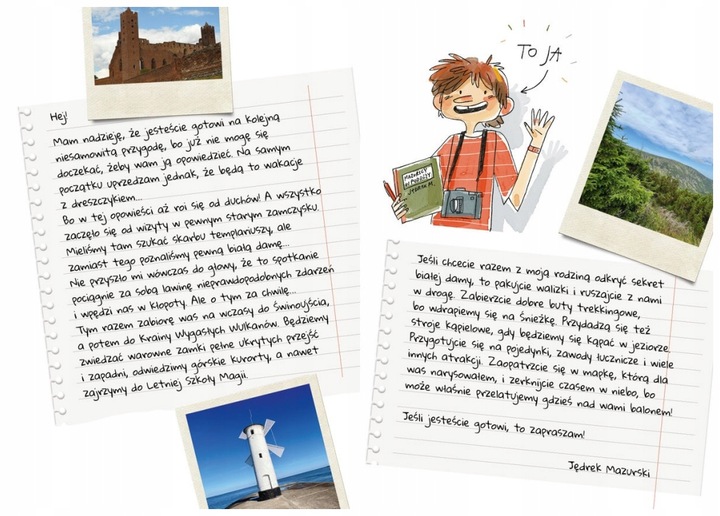 Hej!
Mam nadzieję, że jesteście gotowi na kolejną
niesamowitą przygodę, bo już nie mogę się
doczekać, żeby wam ją opowiedzieć. Na samym
początku uprzedzam jednak, że będą to wakacje
z dreszczykiem...
Bo w tej opowieści aż roi się od duchów! A wszystko
zaczęło się od wizyty w pewnym starym zamczysku.
Mieliśmy tam szukać skarbu templariuszy, ale
zamiast tego poznaliśmy pewną białą damę...
Nie przyszło mi wówczas do głowy, że to spotkanie
pociągnie za sobą lawinę nieprawdopodobnych zdarzeń
i wpędzi nas w kłopoty. Ale o tym za chwilę...
Tym razem zabiorę was na wczasy do Świnoujścia,
a potem do Krainy Wygasłych Wulkanów. Będziemy
zwiedzać warowne zamki pełne ukrytych przejść
i zapadni, odwiedzimy górskie kurorty, a nawet
zajrzymy do Letniej Szkoły Magii.
TO JA
JĘDREK M.
Jeśli chcecie razem z moją rodziną odkryć sekret
białej damy, to pakujcie walizki i ruszajcie z nami
w drogę. Zabierzcie dobre buty trekkingowe,
bo wdrapiemy się na Śnieżkę. Przydadzą się też
stroje kąpielowe, gdy będziemy się kąpać w jeziorze.
Przygotujcie się na pojedynki, zawody łucznicze i wiele
innych atrakcji. Zaopatrzcie się w mapkę, którą dla
was narysowałem, i zerknijcie czasem w niebo, bo
może właśnie przelatujemy gdzieś nad wami balonem!
Jeśli jesteście gotowi, to zapraszam!
Jędrek Mazurski